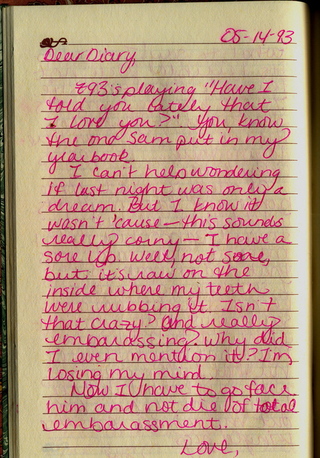 05-14-93
Dear Diary,
Z93's playing "Have I
told you lately that
I love you?" You know
the one Sam put in my
yearbook.
I can't help wondering
if last night was only a
dream. But I know it
wasn't 'cause — this sounds
really corny — I have a
sore lip. Well, not sore,
but it's raw on the
inside where my teeth
were rubbing it. Isn't
that crazy? And really
embarassing? Why did
I even mention it? I'm
losing my mind.
Now I have to go face
him and not die of total
embarassment.
Love,